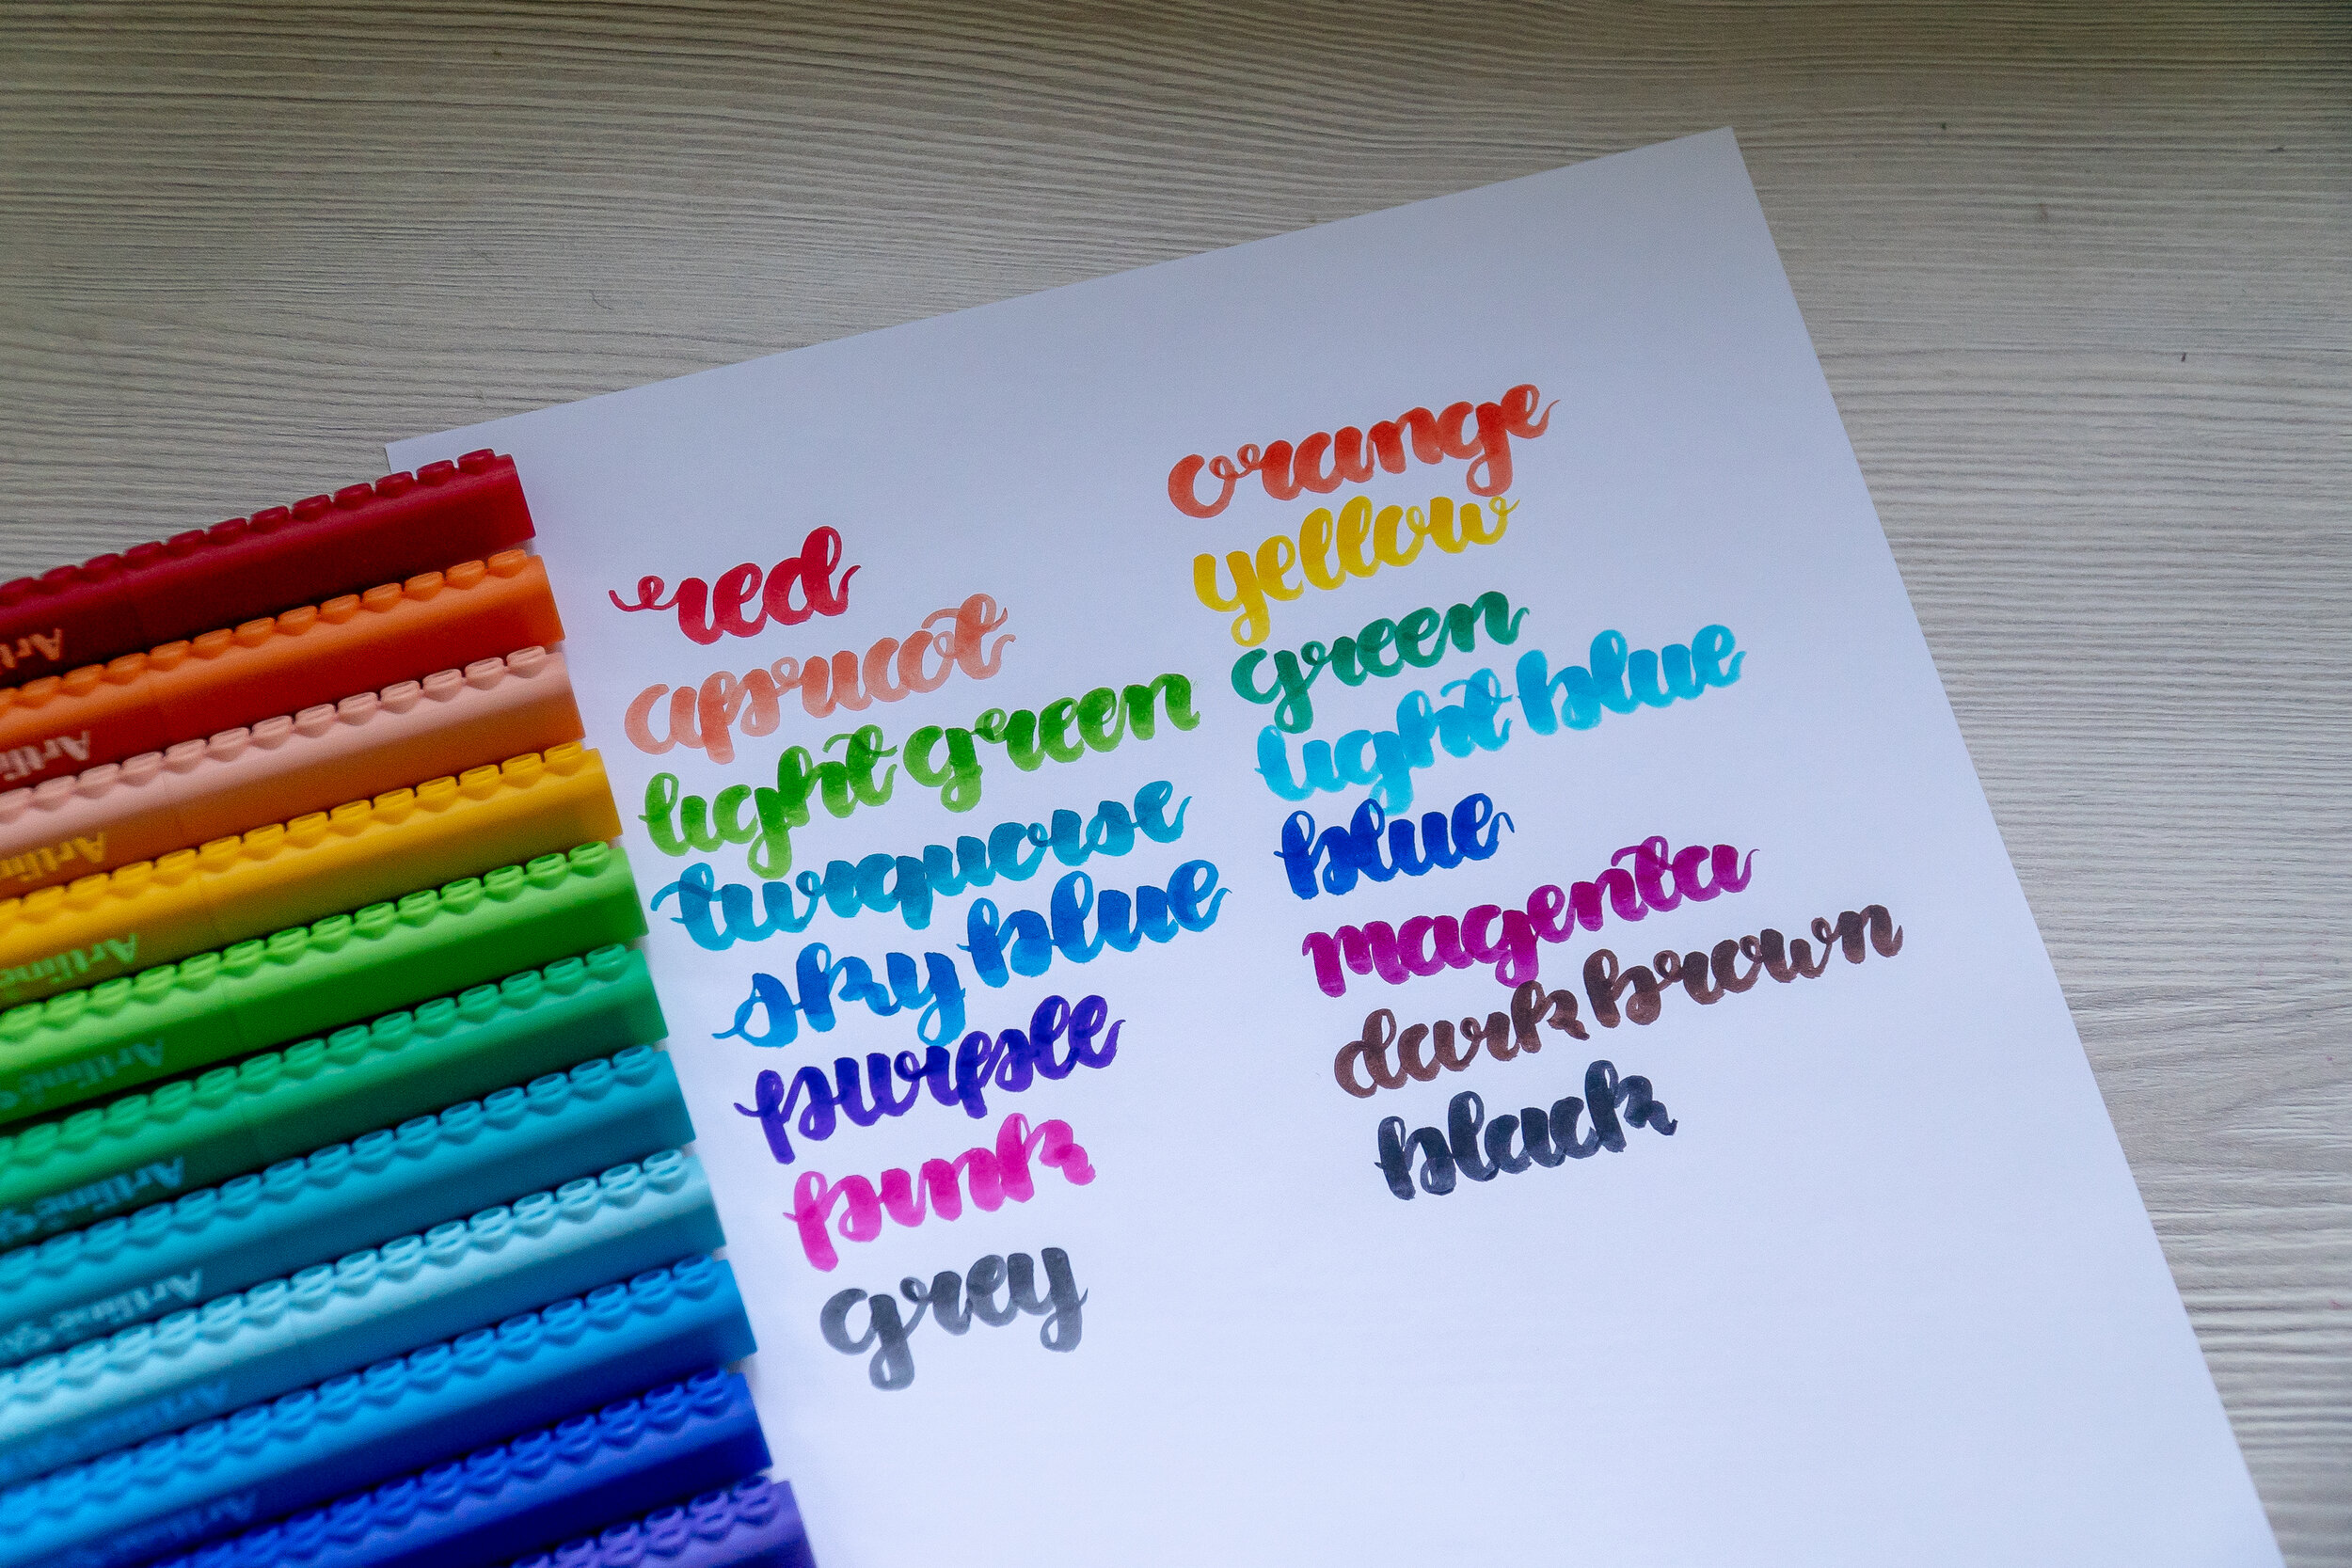 red
apricot
light green
turquoise
sky blue
purple
pink
grey
orange
yellow
green
light blue
blue
magenta
dark brown
black
Artline
Artline
Artline
Artline
Artline